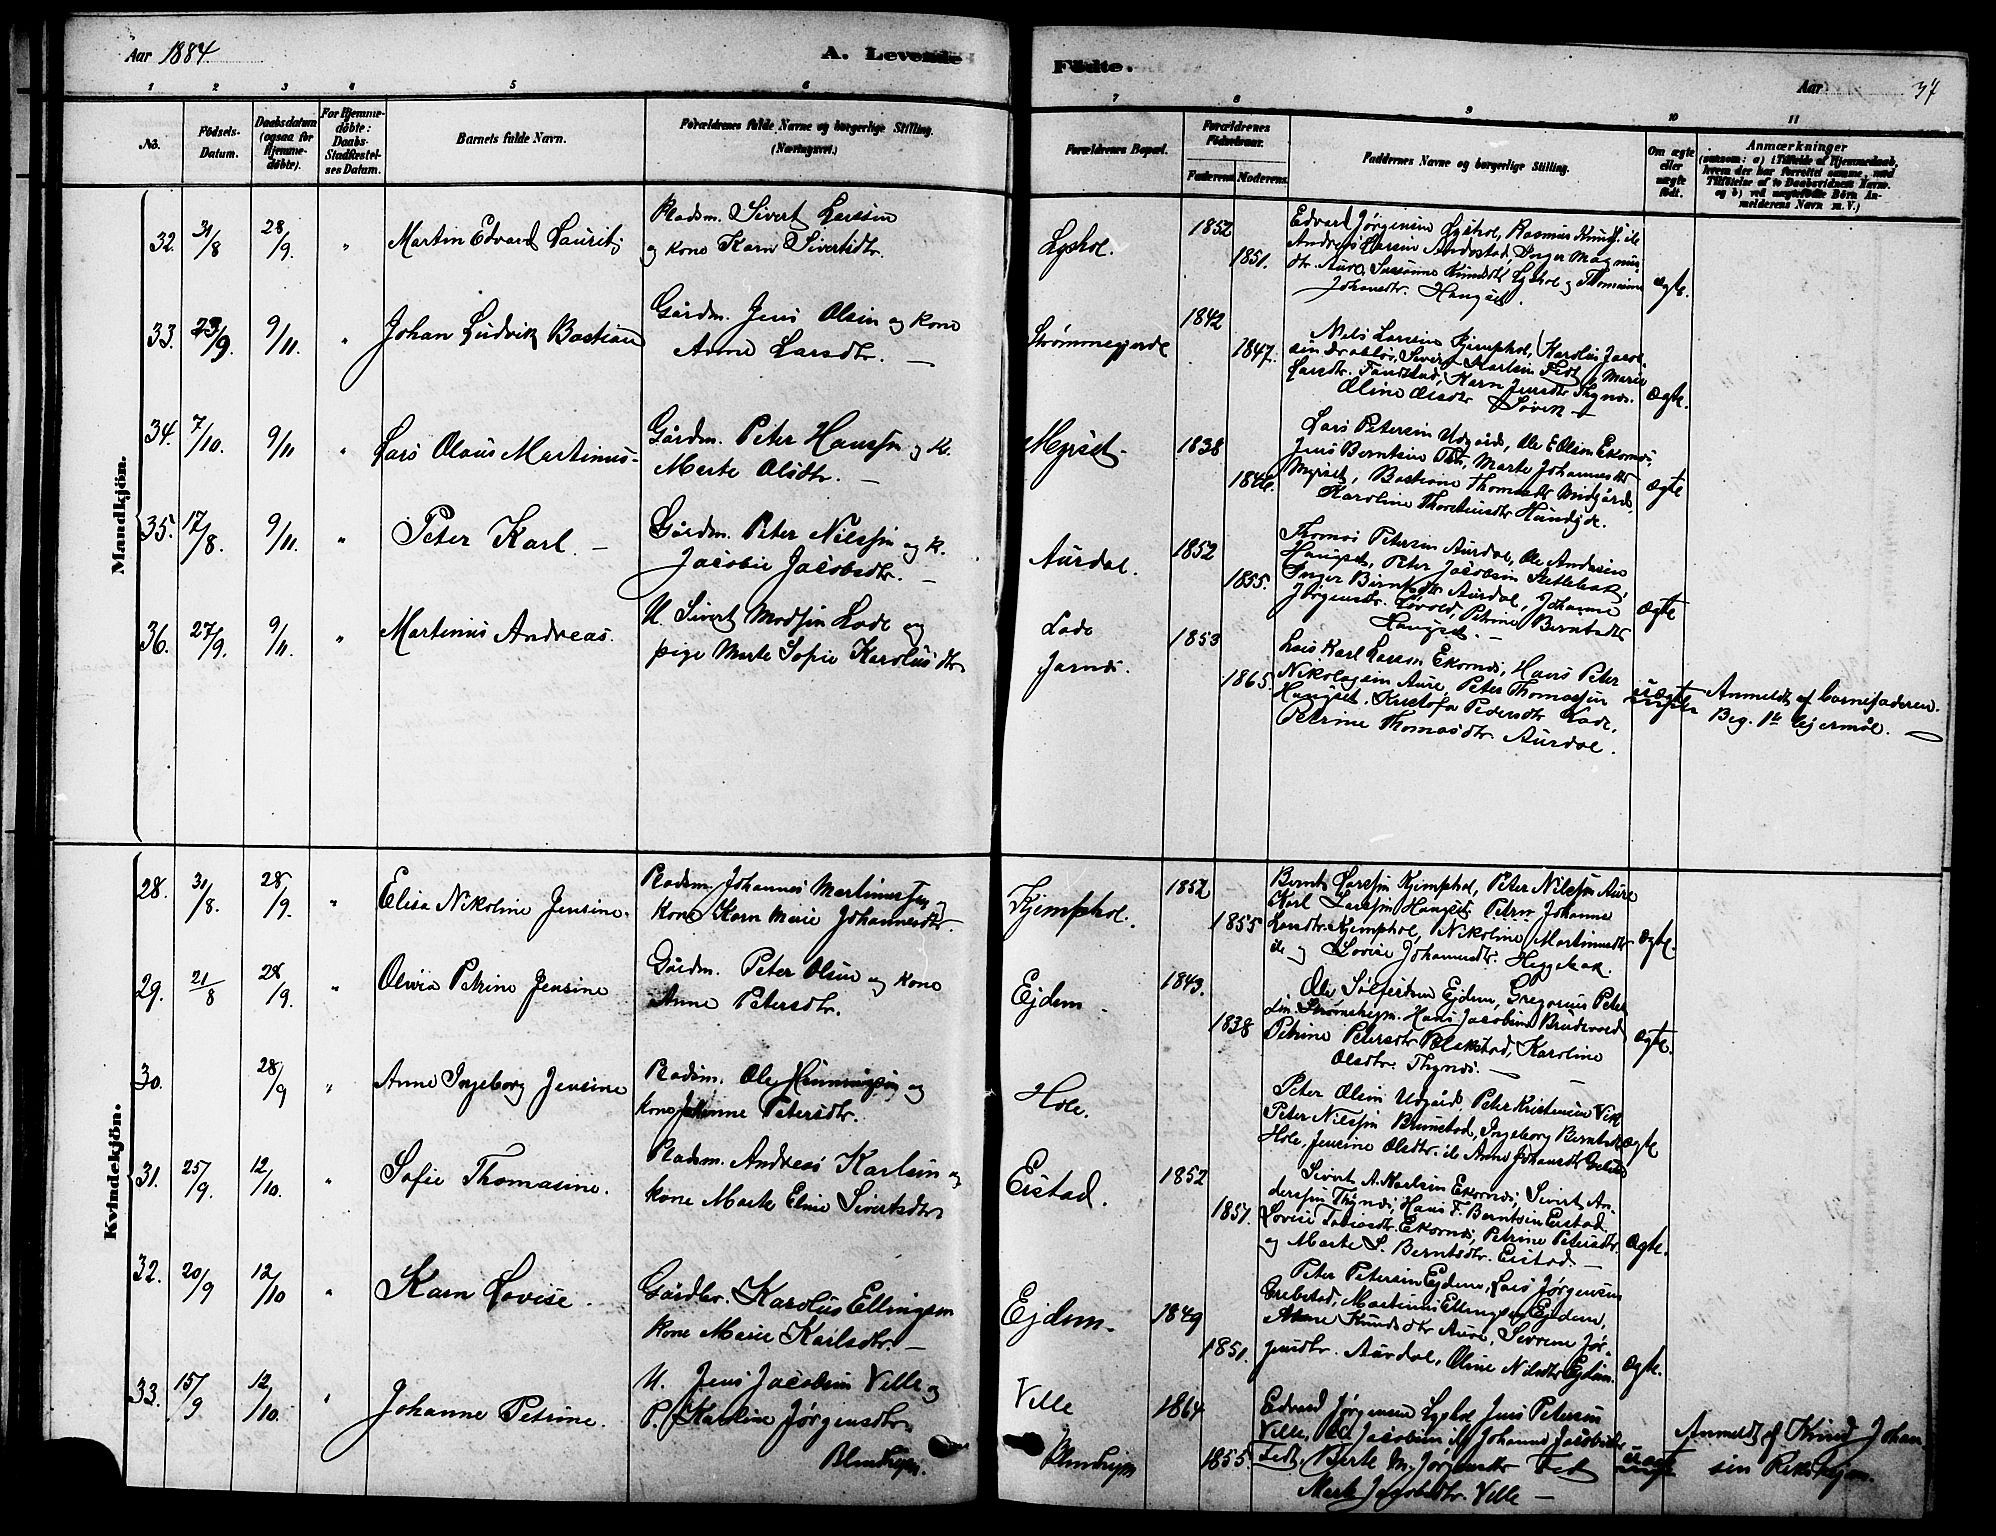 Aar 1884.
A. Levende
Fødte.
Aar 37
1 2 3 4 5 6
7 8 9 10 11
No.
Fødsels-Datum.
Daabsdatum (ogsaa for Hjemmedøbte).
For Hjemmedøbte: Daabs-Stadfæstelses Datum.
Barnets fulde Navn.
Forældrenes fulde Navne og borgerlige Stilling. (Næringsvei.)
Forældrenes Bopæl.
Forældrenes Fødselsaar.
Faderens. Moderens.
Faddernes Navne og borgerlige Stilling.
Om ægte eller uægte født.
Anmærkninger
Mandkjøn.
32. 31/8 28/9. " Martin Edvard Laurits
Pladsm. Sivert Larssen
og kone Karn Sivertsdtr.
Lyshol.
1852
1851.
Edvard Jørgensen Lyshol, Rasmus
Andreas Larsen Andestad, Inger Magnus
dtr. Aure, Susanne Knudsdtr Lyshol og Thomasine
Johansdtr. Haugset.
Ægte.
33. 23/9. 9/11. " Johan Ludvik Bastian
Gårdm. Jens Olsen og kone
Anne Larsdtr. —
Strømmegjerde
1842
1847.
Nils Larsen Kjemphol, Karolus Jacob
sen Drabløs, Sivert Karlsen Fedt, Marie
Larsdtr. Tandstad, Karn Jensdtr Thynes.
Oline Olsdtr Søvik —
Ægte.
34. 7/10. 9/11 " Lars Olaus Martinus
Gårdm. Peter Hanssen og k.
Marte Olsdtr. —
Myrset.
1838
1846.
Lars Petersen Udgård, Ole E Olsen Ekornes,
Jens Berntsen Marte Johannesdtr
Myrset, Bastiane Thomasdtr Midgård,
Karoline Thorstensdtr Hundeide.
Ægte
35. 17/8. 9/11. " Peter Karl. —
Gårdm. Peter Nilssen og k.
Jacobie Jacobsdtr. —
Aurdal.
1852
1855.
Thomas Petersen Aurdal, Ole Andersen
Haugset, Peter Jacobsen Sætlebak,
Inger Berntsdtr Aurdal, Johanne
Jørgensdtr. Løvold, Petrine Berntsdtr
Haugset. —
Ægte
36. 27/9. 9/11. " Martinus Andreas.
U. Sivert Madsen Lade og
pige Marte Sofie Karolusdtr
Lade
Jarnes.
1853
1865.
Lars Karl Larssen Ekornes, Hans Peter
Nikolaysen Aure, Peter Thomassen
Haugset, Kristofa Pedersdtr Lade,
Petrine Thomasdtr. Aurdal.
uægte
Anmeldt af barnefaderen.
Beg. 1te Lejermål. —
Kvindekjøn.
28. 31/8. 28/9. " Elisa Nikoline Jensine.
Pladsm. Johannes Martinussen og
kone Karn Marie Johannesdtr.
Kjemphol.
1852
1855
Bernt Larssen Kjemphol, Peter Nilssen Aure
Karl Larssen Haugset, Johanne
Larsdtr. Kjemphol, Nikoline Martinusdtr
ib og Lovise Johannesdtr. Heggebak.
Ægte.
29. 21/8 28/9. " Olivia Petrine Jensine
Gårdm. Peter Olsen og kone
Anne Petersdtr.
Ejdem
1843.
1838
Ole Ejdem, Gregorius Peter
sen Strømshejm. Hans Jacobsen Brudevold
Petrine Petersdtr Blakstad, Karoline
Olsdtr. Thynes. —
Ægte.
30. 28/9 " Anne Ingeborg Jensine
Pladsm. Ole Henningsen og
kone Johanne Petersdtr.
Hole.
Peter Olsen Udgård, Peter Kristensen Vik
Peter Nilssen Brunstad, Ingeborg Berntsdtr
Hole, Jensine Olsdtr. ib Anne Johansdtr
Ægte
31. 25/9. 12/10. " Sofie Thomasine.
Pladsm. Andreas Karlsen og
kone Marte Eline Sivertsdtr
Eistad.
1852
1851.
Sivert A. Karlsen Ekornes, Sivert An-
derssen Thynes, Hans F. Berntsen Eistad
Lovise Tobiasdtr. Ekornes, Petrine Petersdtr.
og Marte S. Berntsdtr. Eistad —
Ægte.
32. 20/9 12/10 " Karn Lovise.
Gårdbr. Karolus Ellingsen
kone Marie Karlsdtr. —
Ejdem.
1849
1851.
Peter Petersen Ejdem, Lars Jørgensen
Grebstad, Martinus Ellingsen Ejdem,
Anne Knudsdtr Aure, Severine Jør-
gensdtr. Aurdal, Oline Nilsdtr Ejdem.
Ægte.
33. 15/9 12/10. " Johanne Petrine.
U. Jens Jacobsen Velle og
P. Karoline Jørgensdtr.
Blindhejm.
Velle
Blindhejm
1864
1855.
Edvard Jørgensen Lyshol, Jens Petersen
Velle, Jacobsen ib Johanne Jacobsdtr
Fedt, Berte M. Jørgensdtr Fedt
Marte Jacobsdtr. Velle —
uægte
Anmeldt af Knud Johan
sen